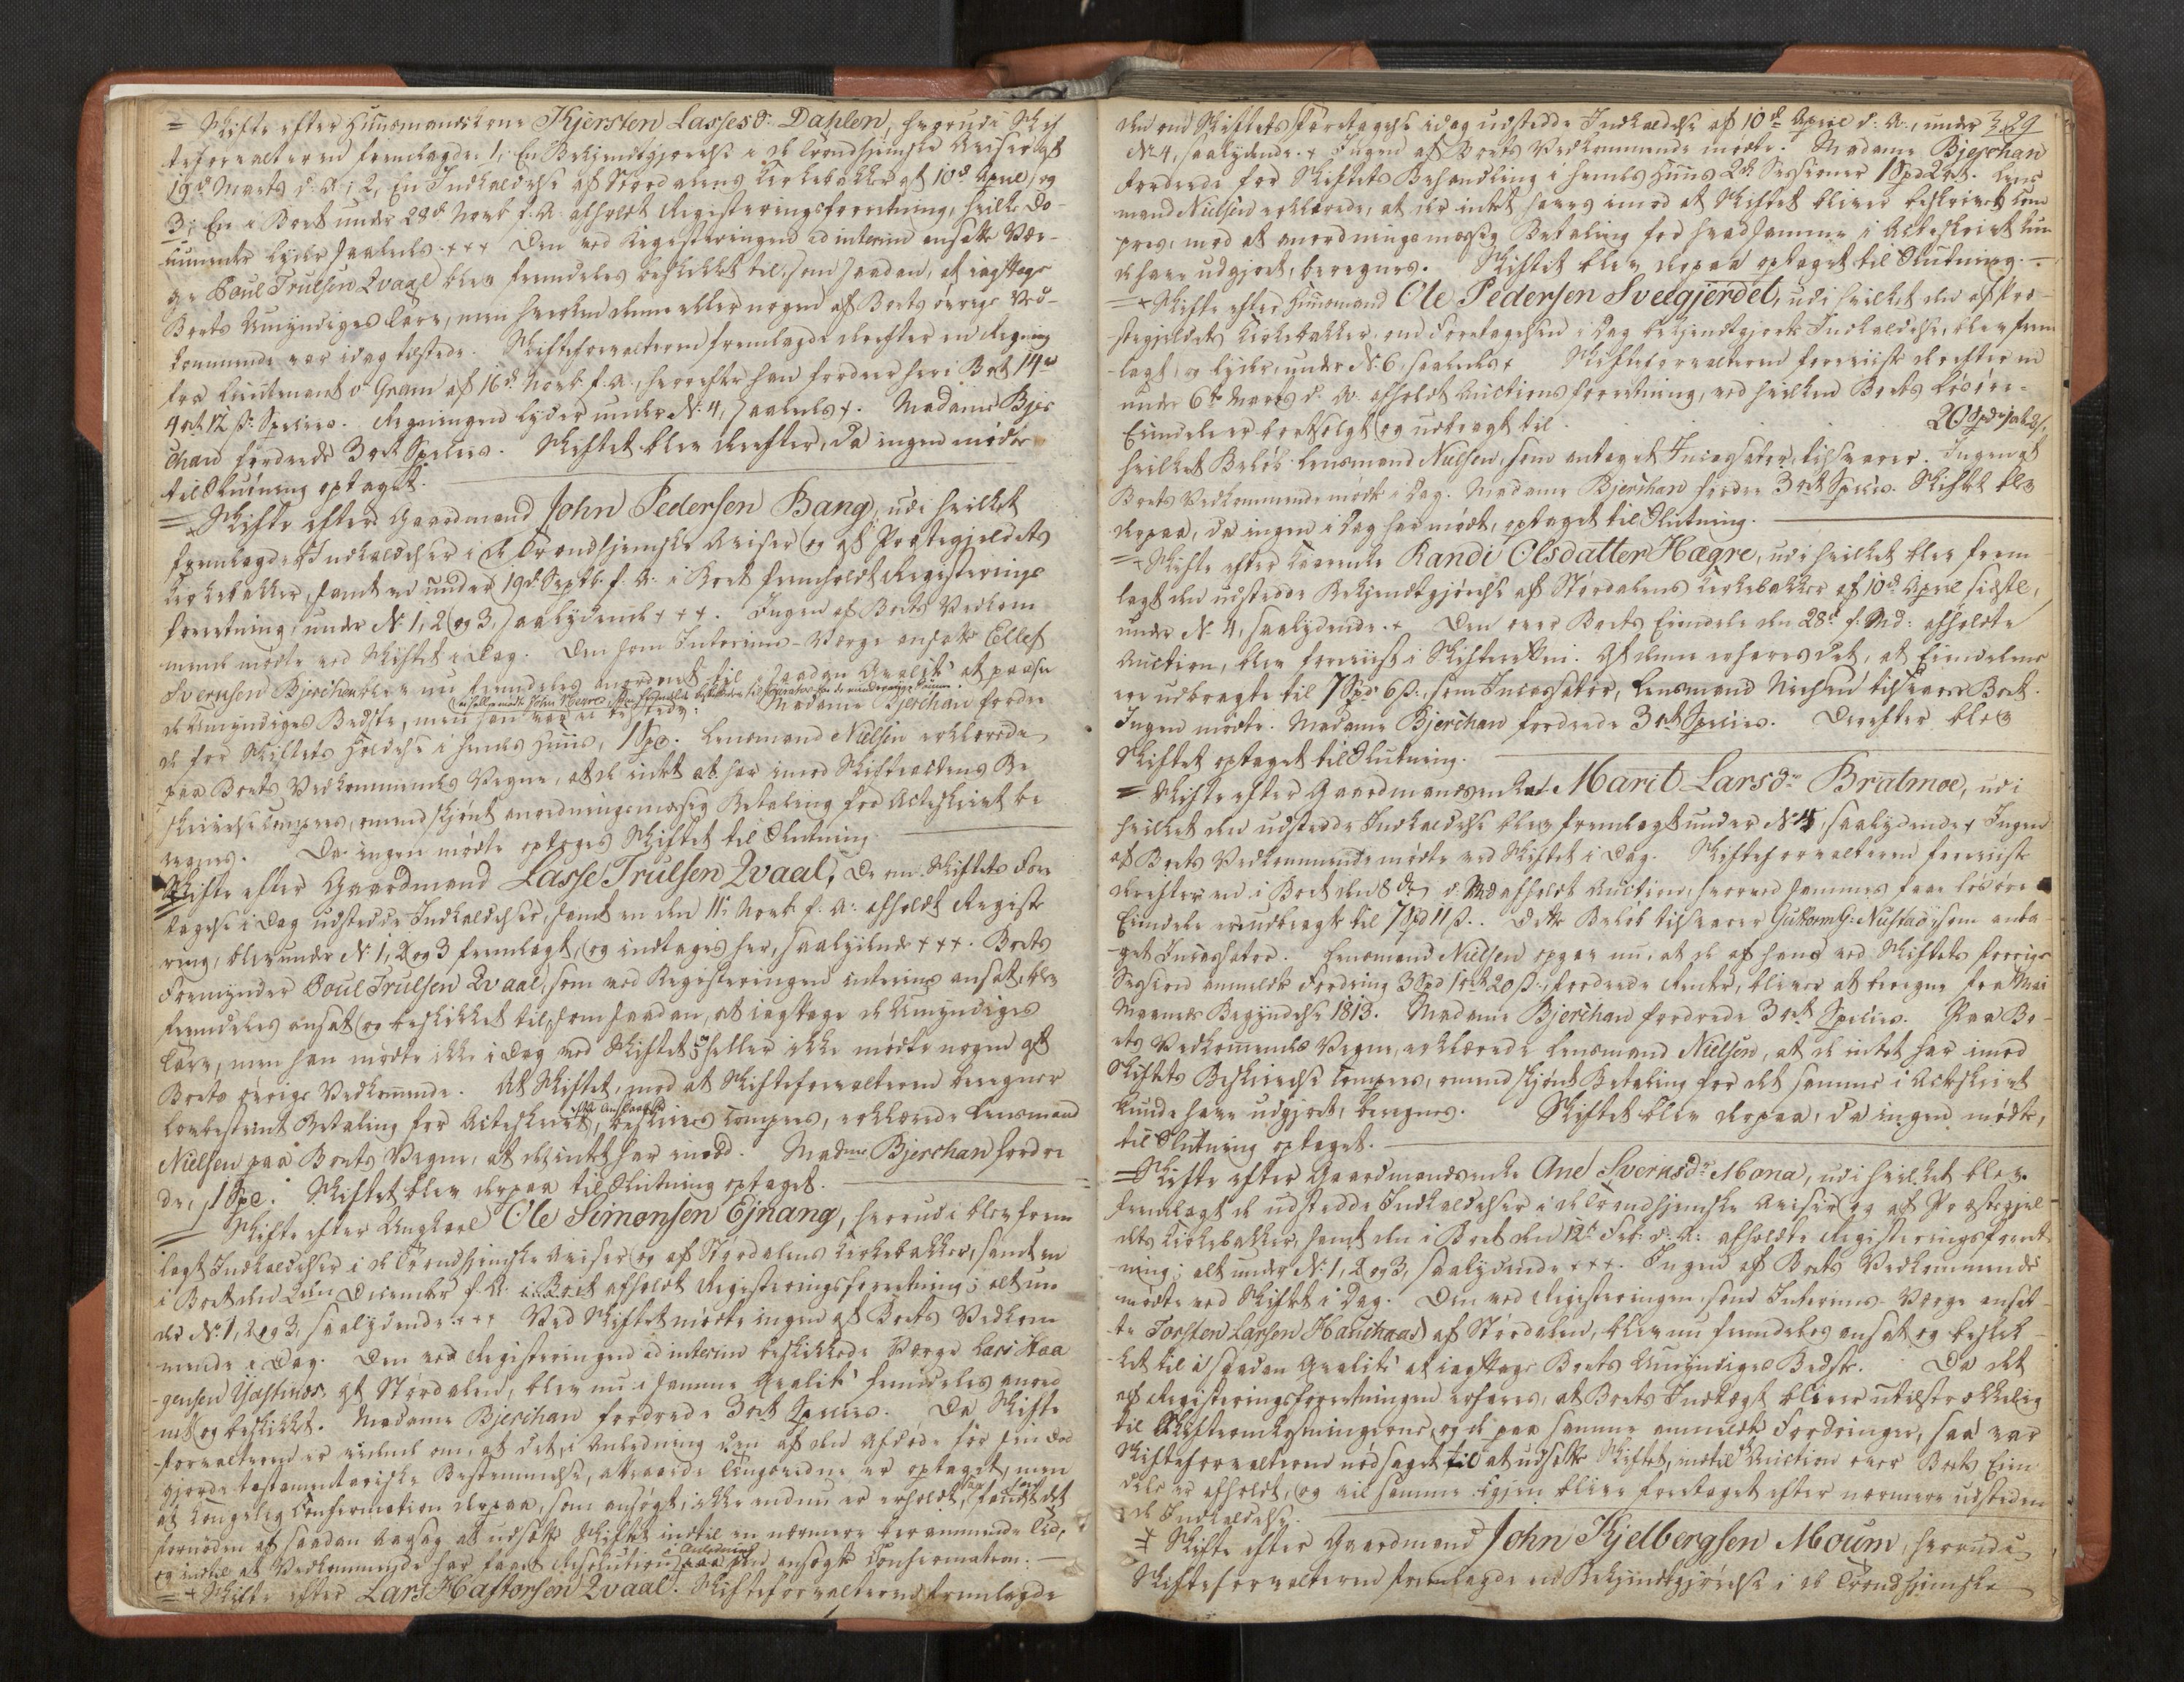 = Skifte efter Huusmandskone Kjersten Lassesd: Dahlen, hvorudi Skif
teforvalteren fremlagde 1, En Bekjendtgjørelse i de Trondhjemske Aviser af
19d Marts d: A: 2, En Indkaldelse af Størdalens Kirkebakke af 10d April, og
3; En i Boet under 28d Novb: f: A: afholdt Registeringsforretning, hvilke Do-
cumenter lyder saaledes +++ Den ved Registeringen ad interim ansatte Vær-
ge Poul Trulsen Qvaal blev fremdeles beskikket til, som saadan, at iagttage
Boets Umyndiges Tarv, men hverken denne eller nogen af Boets øvrige Ved-
kommende var idag tilstede. Skifteforvalteren fremlagde derefter en Regning
fra Lieutenant v Gram af 16d Novb: f: A:, hvorefter han fordrer her i Boet 14
4 ort 12 s: Species. Regningen lyder under No: 4, saaledes +. Madame Bjer
chan fordrede 3 ort Species. Skiftet blev derefter, da ingen mødte
til Slutning optaget.
= + Skifte efter Gaardmand John Pedersen Bang, udi hvilket
fremlagde Indkaldelser i de Trondhjemske Aviser og af Præstegjeldets
Kirkebakker, samt en under 19d Septbr f: A: i Boet fremholdt Registerings
forretning, under No 1, 2 og 3, saalydende +++. Ingen af Boets Vedkom
mende mødte ved Skiftet i Dag. Den som Interims-Værge ansatte Ellef
Svernsen Bjerchan blev nu fremdeles anordnet til i saadan Qvalité at paasee
de Umyndiges Bedste, men han var ei tilstede. Madame Bjerchan fordre
de for Skiftets Holdelse i hendes Huus, 1 Spd. Lensmand Nielsen erklærede
paa Boets Vedkommendes Vegne, at de intet at har imod Skifteaktens Be
skrivelse compres, omendskjønt anordningsmæssig Betaling for Acteskriet be
regnes. Da ingen mødte optoges Skiftet til Slutning
Skifte efter Gaardmand Lasse Trulsen Qvaal, De om Skiftets Fore
tagelse i Dag udstedde Indkaldelser, samt en den 11te Novb: f: A: afholdt Registe
ring, blev under No: 1, 2 og 3 fremlagt, og indtages her, saalydende +++. Boets
Formynder Poul Trulsen Qvaal, som ved Registeringen interims ansat, blev
fremdeles ansat og beskikket til, som saadan, at iagttage de Umyndiges
Tarv, men han mødte ikke i Dag ved Skiftet og heller ikke mødte nogen af
Boets øvrige Vedkommende. At Skiftet, mod at Skifteforvalteren beregner
lovbestemt Betaling for Acteskriet, beskrives compres, erklærede Lensmand
Nielsen paa Boets Vegne, at de intet har imod. Madme Bjerchan fordre
de, 1 Spd. Skiftet blev derpaa til Slutning optaget.
= Skifte efter Ungkarl Ole Simonsen Ejnang, hvorudi blev frem
lagt Indkaldelser i de Trondhjemske Aviser og af Størdalens Kirkebakker, samt en
i Boet den December f: A: i Boet afholdt Registeringsforretning; alt un
der No: 1, 2 og 3, saalydende +++ Ved Skiftet mødte ingen af Boets Vedkom
mende i Dag. Den ved Registeringen ad interim beskikkede Værge Lars Haa
gensen af Størdalen, blev nu i samme Qvalité fremdeles anord
net og beskikket. Madame Bjerchan fordrede 3 ort Species. Da Skifte
forvalteren er vidende om, at det, i Anledning den af den Afdøde før sin Død
gjorde testamentariske Bestemmelse, attraaede Tingsvidne er optaget, men
at kongelig Confirmation derpaa, som ansøgt, ikke endnu er erholdt, saa fandt det
fornøden at saadan Aarsag at udsætte Skiftet indtil en nærmere berammende Tid,
og indtil at Vedkommende har faaet Resolution i Anledning den ansøgte Confirmation. —
= + Skifte efter Lars Haftorsen Qvaal. Skifteforvalteren fremlagde
329
den om Skiftets Foretagelse idag udstedde Indkaldelse af 10d April d: A:, under
No 4, saalydende. + Ingen af Boets Vedkommende mødte. Madame Bjerchan
fordrede for Skiftets Behandling i hendes Huus 2de Sessioner 1 Spd 2 ort. Lens
mand Nielsen erklærede, at der intet haves imod at Skiftet bliver beskrivet com
pres, mod at anordningsmæssig Betaling for hvad samme i Acteskriet kun
de have udgjort, beregnes. Skiftet blev derpaa optaget til Slutning. —
= + Skifte efter Huusmand Ole Pedersen Sveegjerdet, udi hvilket den af Præ-
stegjeldets Kirkebakker, om Foretagelsen i Dag bekjendtgjorte Indkaldelse, blev frem
lagt, og lyder, under No: 6, saaledes + Skifteforvalteren foreviiste derefter en
under 6te Marts d: A: afholdt Auctionsforretning, ved hvilken Boets Løsøre-
Eiendele er bortsolgt og udbragt til 20
hvilket Beløb Lensmand Nielsen, som antaget Incassator, tilsvarer. Ingen af
Boets Vedkommende mødte i Dag. Madame Bjerchan fordrer 3 ort Species. Skiftet blev
derpaa, da ingen i Dag har mødt, optaget til Slutning.
= + Skifte efter Randi Olsdatter Hægre, udi hvilket blev frem
lagt den udstedde Bekjendtgjørelse af Størdalens Kirkebakke af 10d April sidstl,
under No 4, saalydende. + Den over Boets Eiendele den 28d f: Md: afholdte
Auction, blev foreviist i Skifteretten. Af denne erfares det, at Eiendelene
ere udbragte til 7 Spd 6 s:, som Incassator, Lensmand Nielsen tilsvarer Boet.
Ingen mødte. Madame Bjerchan fordrede 3 ort Species. Derefter blev
Skiftet optaget til Slutning.
= Skifte efter Gaardmandsenke Marit Larsdr Bratmoe, udi
hvilket den udstedde Indkaldelse blev fremlagt under No 4, saalydende + Ingen
af Boets Vedkommende mødte ved Skiftet i Dag. Skifteforvalteren foreviiste
derefter en i Boet den 8de d: Md afholdt Auction, hvorved sammes faae Løsøre
Eiendele er udbragt til 7 Spd 11 s:. Dette Beløb tilsvarer Guttorm G: Nustad, som anta
get Incassator. Lensmand Nielsen opgav nu, at de af ham ved Skiftets forrige
Session anmeldte Fordring 3 Spd 1 ort 20 s:, fordrede Renter, bliver at beregne fra Mai
Maaneds Begyndelse 1813. Madame Bjerchan fordrede 3 ort Species. Paa Bo-
ets Vedkommendes Vegne, erklærede Lensmand Nielsen, at de intet har imod
Skiftets Beskrivelse Compres, omendskjønt Betaling for det samme i Acteskriet
kunde have udgjort, beregnes. Skiftet blev derpaa, da ingen mødte,
til Slutning optaget.
= Skifte efter Gaardmandsenke Ane Svernsdr Mona, udi hvilket blev
fremlagt de udstedde Indkaldelser i de Trondhjemske Aviser og af Præstegjel
dets Kirkebakker, samt den i Boet den 12te Feb: d: A: afholdte Registeringsforret
ning; alt under No: 1, 2 og 3, saalydende +++. Ingen af Boets Vedkommende
mødte ved Skiftet i Dag. Den ved Registeringen som Interims-Værge ansat
te Torsten Larsen af Størdalen, blev nu fremdeles ansat og beskik
ket til i saadan Qvalité at iagttage Boets Umyndiges Bedste. Da det
af Registeringsforretningen erfares, at Boets Indtægt bliver utilstrækkelig
til Skifteomkostningerne, og de paa samme anmeldte Fordringer, saa var
Skifteforvalteren nødsaget til at udsætte Skiftet, indtil Auction over Boets Eien
dele er afholdt, og vil samme igjen blive foretaget efter nærmere udsteden
de Indkaldelse.
= + Skifte efter Gaardmand John Kjelbergsen Moum, hvorudi
Skifteforvalteren fremlagde en Bekjendtgjørelse i de Trondhjemske